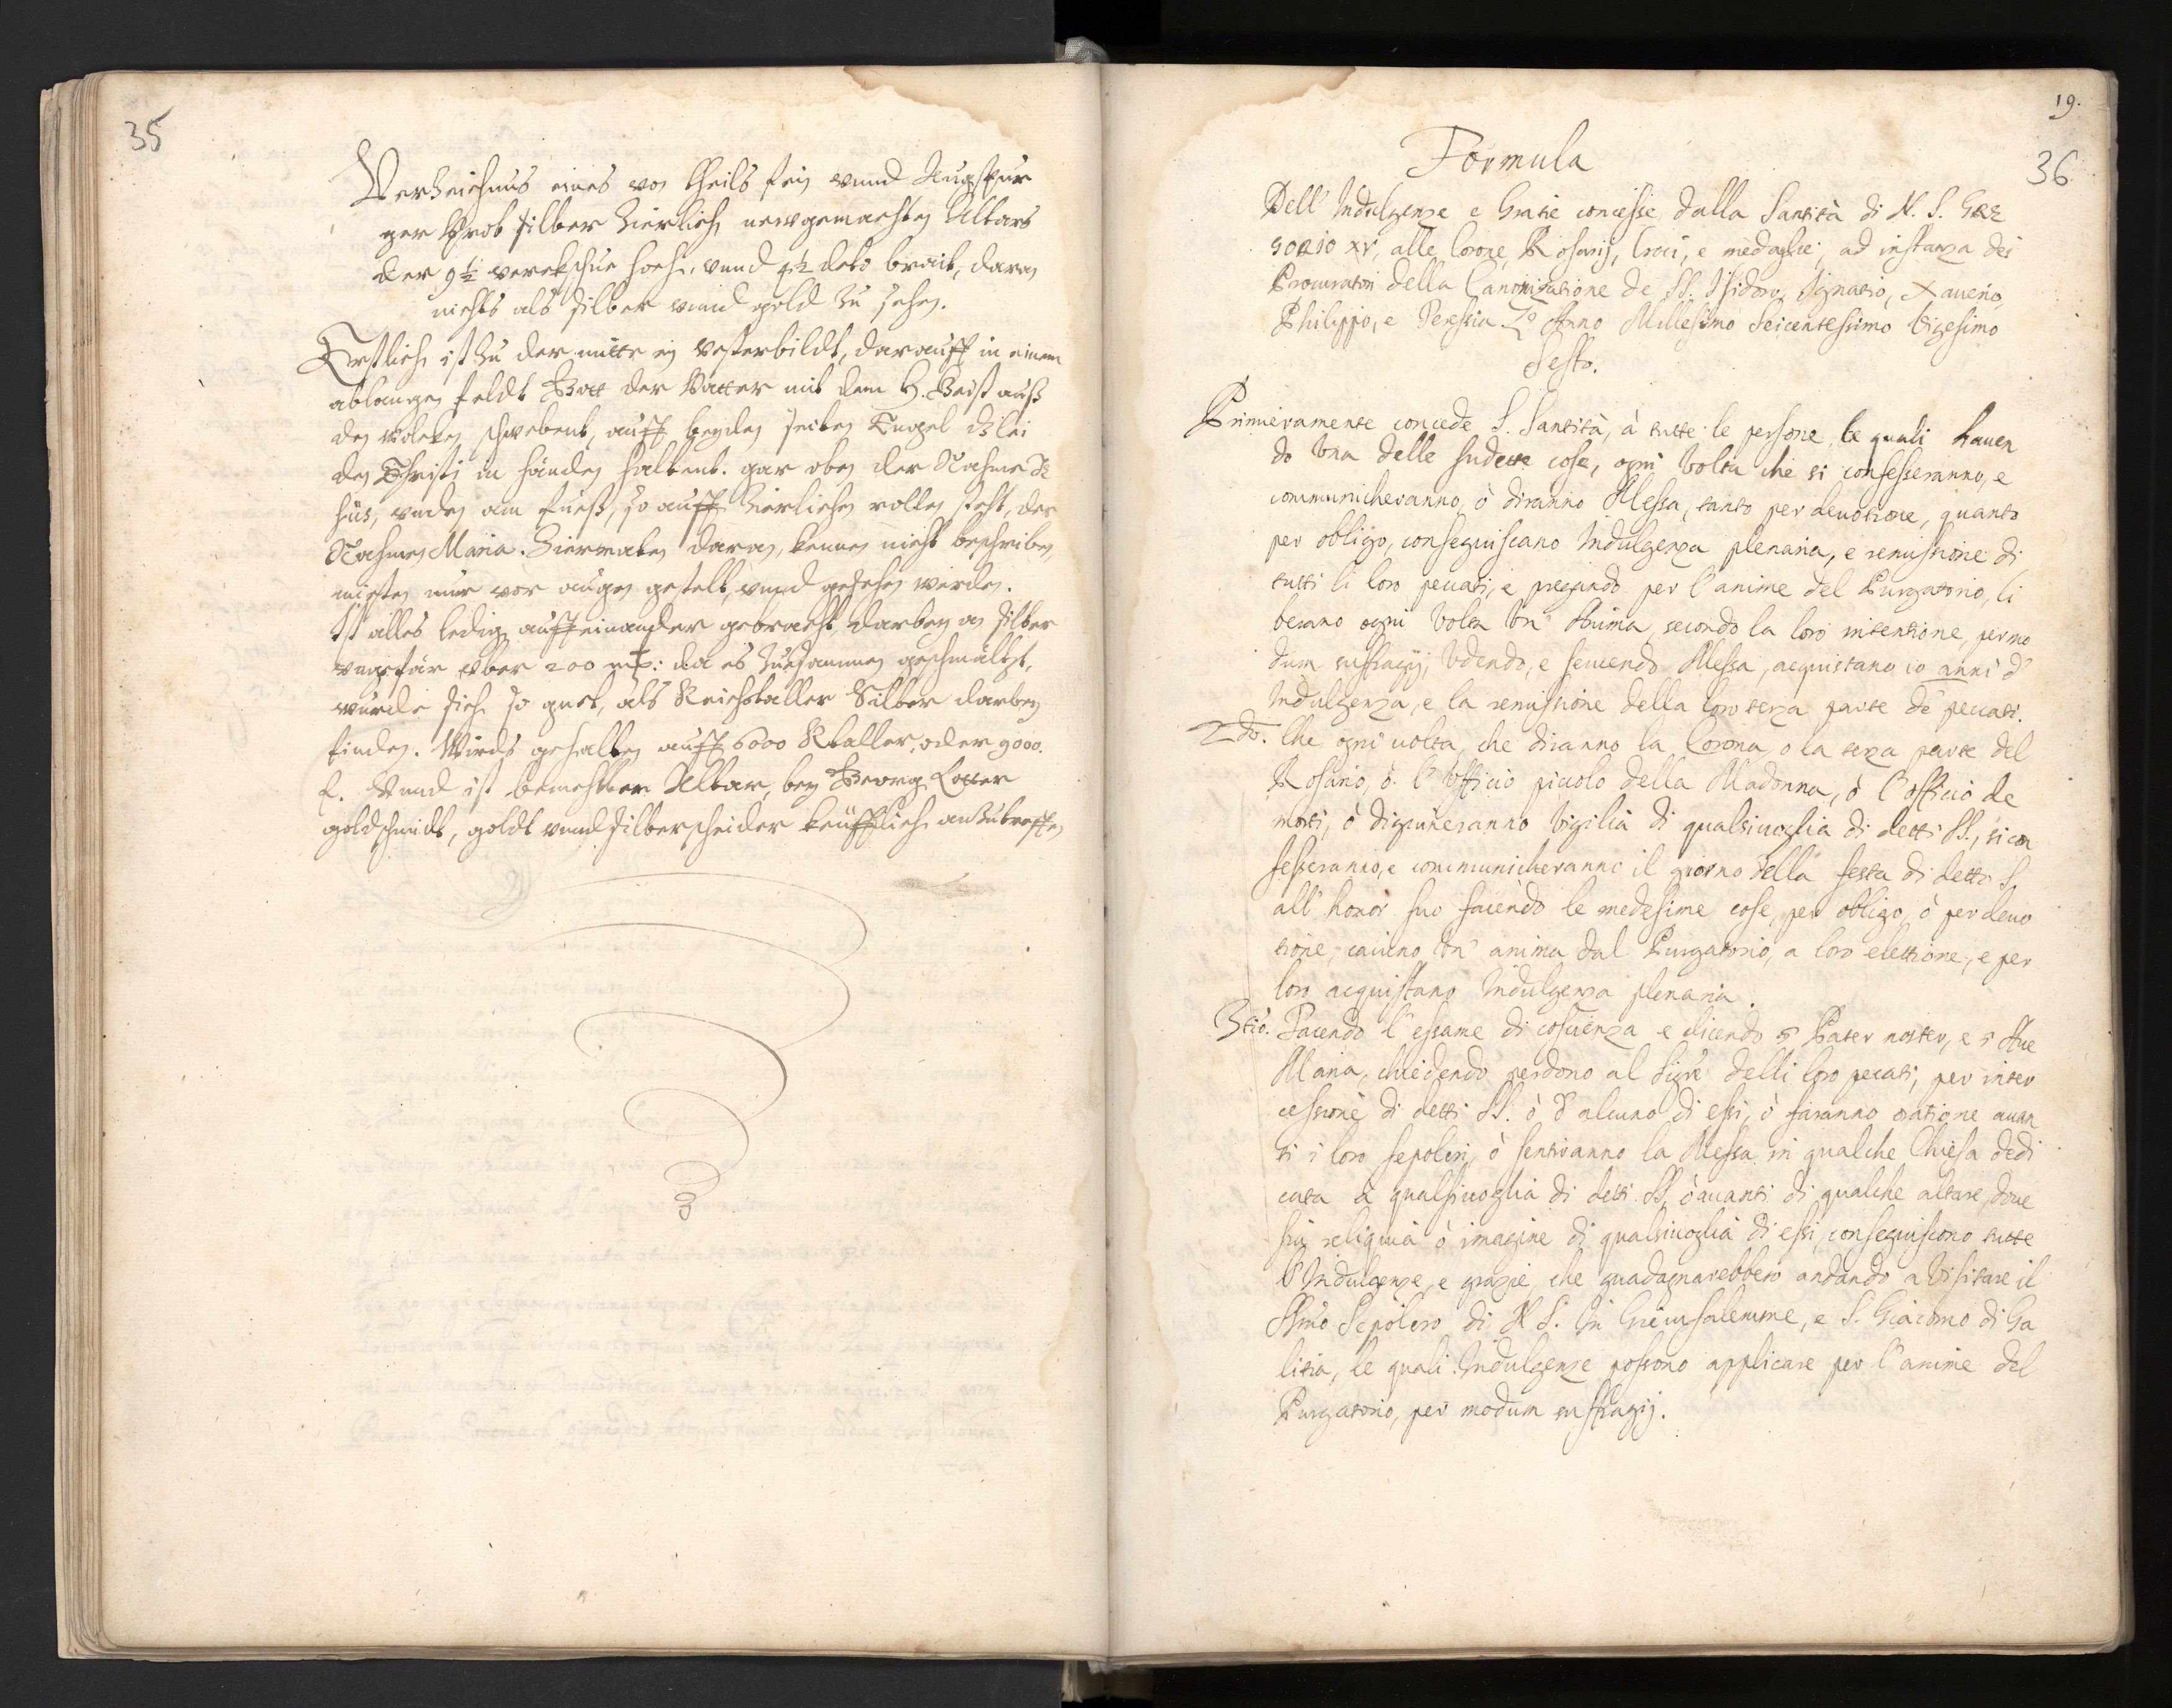 35
Verzeichnus eines von theils fein vnnd Augspur
ger Prob silber zierlich newgemachten Altars
der 9½ werckschue hoch, vnnd 4½ deto brait, daran
nichts als silber vnnd gold zu sehen.
Erstlich ist zu der mitte ein Vesterbildt, darauff in einem
ablangen feldt Gott der Vatter mit dem H. Geist auß
den wolcken schwebent, auff beyden seiten Engel dz lei
den Christi in händen haltent. gar oben der Nahme Je
sus, vnden am fueß, so auff zierlichen rollen steht, der
Nahmen Maria. Zierwaten daran, kennen nicht beschriben,
miesten nur vor augen gestelt, vnnd gesehen werden.
Ist alles ledig auff einander gebracht, darbey an silber
vngefär vber 200 m: da es zusammen geschmältzt,
wurde sich so guet, als Reichstaller Silber darbey
finden. Wirds gehalten auff 6000 Rtaller, oder 9000.
f. Vnnd ist bemelter Altar, bey Georg Lotter
goldschmidt, goldt vnnd silberscheider keüfflich anzutreffen
19.
36
Formula
Dell' Indulgenze e Gratie concesse dalla Santità di N. S. Gre
gorio XV, alle Corone, Rosarij, Croci, e medaglie, ad instanza dei
Procuratori della Canonizatione de SS. Isidoro, Ignatio, Xauerio,
Philippo, e Teressia Anno Millesimo Seicentessimo Vigesimo
Sesto.
Primieramente concede S. Santità, à tutte le persone, le quali hauen
do Vna delle sudette cose, ogni Volta che si confesseranno, e
communicheranno, ò diranno Messa, tanto per deuotione, quanto
per obligo, conseguiscano Indulgenza plenaria, e remissione di
tutti li loro peccati, e pregando per l'anime del Purgatorio, li
berano ogni Volta Vn' Anima, secondo la loro intentione, per mo
dum suffragij, Vdendo, e seruendo Messa, acquistano 10 anni d'
Indulgenza, e la remissione della loro terza parte de peccati.
2do. Che ogni uolta, che diranno la Corona, o la terza parte del
Rosario, ò l'Officio piccolo della Madonna, ò l'officio de
morti, ò digiuneranno Vigilia di qualsiuoglia di detti SS., si con
fesseranno, e communicheranno il giorno della festa di detti S.
all' honor suo facendo le medesime cose, per obligo, ò per deuo
tione, cauano Vn' anima dal Purgatorio, a loro elettione, e per
loro acquistano Indulgenza plenaria.
3tio. Facendo l'essame di coscienza e dicendo 5 Pater noster, e 5 Aue
Maria, chiedendo perdono al Sigre delli loro pecati, per inter
cessione di detti SS. ò d'alcuno di essi, ò faranno oratione auan
ti i loro sepolcri, ò sentiranno la Messa in qualche Chiesa dedi
cata à qualsiuoglia di detti SS, ò auanti di qualche altare, doue
sia reliquia ò imagine di qualsiuoglia di essi, conseguiscono tutte
l'Indulgenze, e grazie, che guadagnarebbero andando a Visitare il
SSmo Sepolcro di N S. In Gierusalemme, e S. Giacomo di Ga
litia, le quali Indulgenze possono applicare per l'anime del
Purgatorio, per modum suffragij.